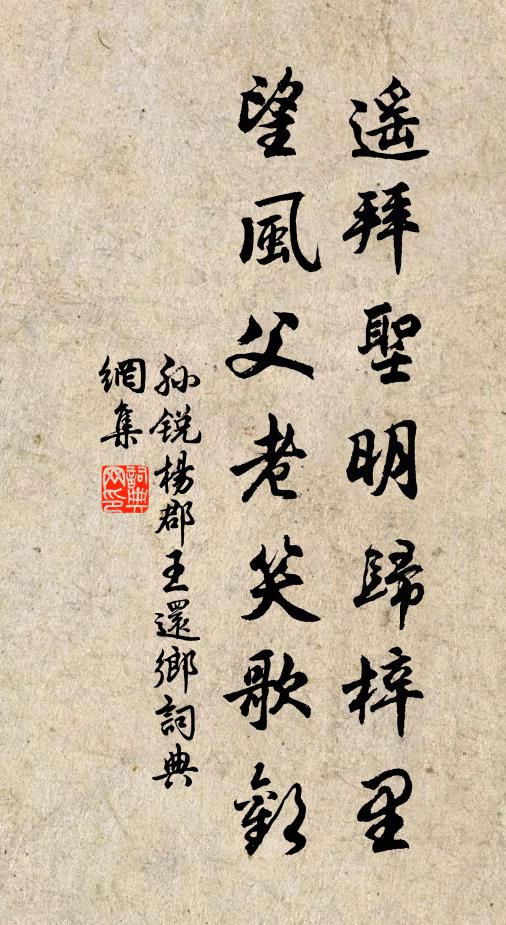 遙拜聖明歸梓里
望風父老笑歌歡
孫銳楊郡王還鄉詞典
網集
詞典網印